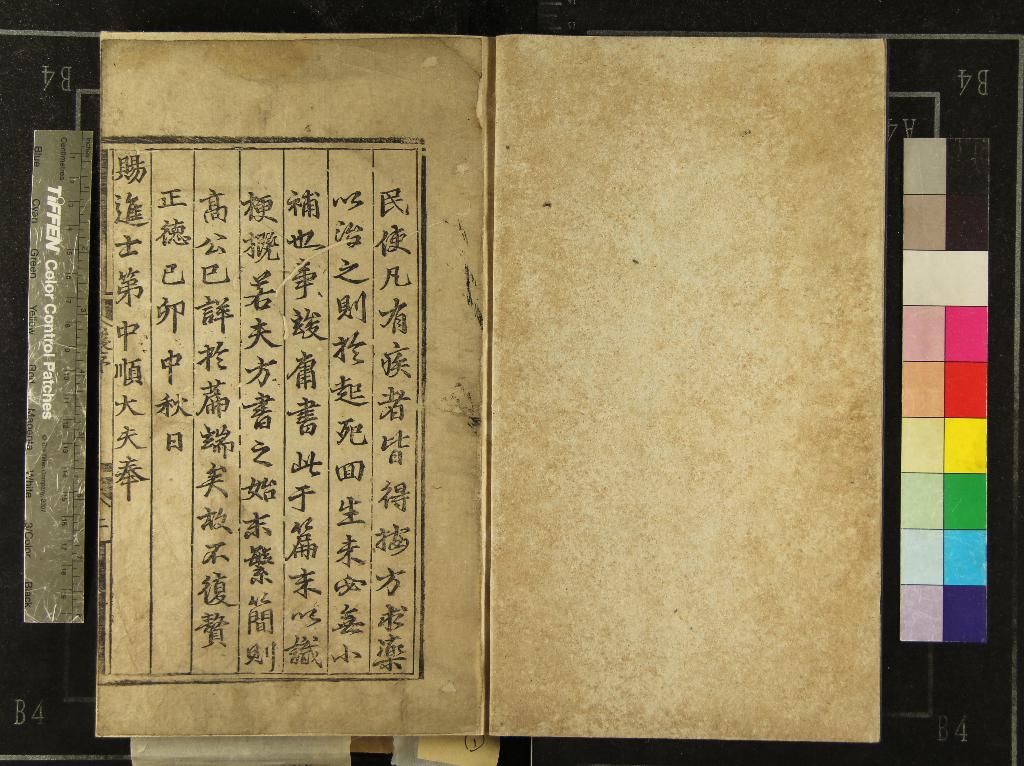 民使凡有疾者皆得按方求藥
以治之則於起死回生未必無小
補也事竣庸書此于篇末以識
梗概若夫方書之始末繁簡則
高公已詳於篇端矣故不復贅
正德己卯中秋日
賜進士第中順大夫奉
後序
二
TIFFEN Color Control Patches
Centimetres
Blue
Cyan
Green
Yellow
Red
Magenta
White
3/Color
Black
B4
B4
A4
B4
B4
1